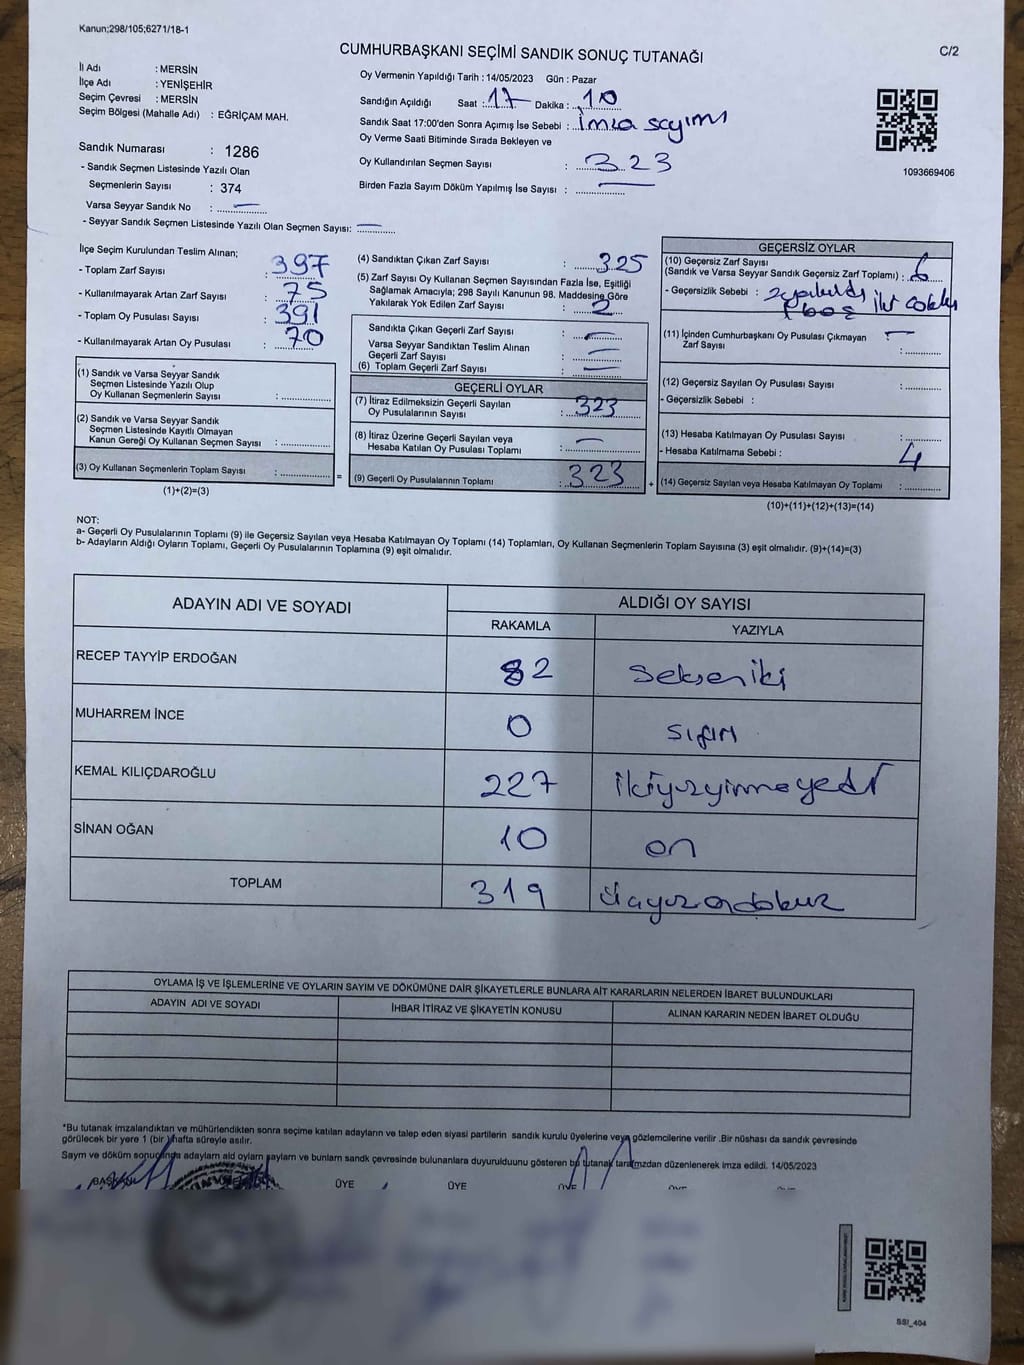 Kanun;298/105;6271/18-1
CUMHURBAŞKANI SEÇİMİ SANDIK SONUÇ TUTANAĞI
C/2
İl Adı : MERSİN
İlçe Adı : YENİŞEHİR
Seçim Çevresi : MERSİN
Seçim Bölgesi (Mahalle Adı) : EĞRİÇAM MAH.
Sandık Numarası : 1286
- Sandık Seçmen Listesinde Yazılı Olan
Seçmenlerin Sayısı : 374
Varsa Seyyar Sandık No : —
- Seyyar Sandık Seçmen Listesinde Yazılı Olan Seçmen Sayısı: —
Oy Vermenin Yapıldığı Tarih : 14/05/2023 Gün : Pazar
Sandığın Açıldığı Saat : 17 Dakika : 10
Sandık Saat 17:00'den Sonra Açımış İse Sebebi : İmza sayımı
Oy Verme Saati Bitiminde Sırada Bekleyen ve
Oy Kullandırılan Seçmen Sayısı : 323
Birden Fazla Sayım Döküm Yapılmış İse Sayısı : —
1093669406
İlçe Seçim Kurulundan Teslim Alınan;
- Toplam Zarf Sayısı : 397
- Kullanılmayarak Artan Zarf Sayısı : 75
- Toplam Oy Pusulası Sayısı : 391
- Kullanılmayarak Artan Oy Pusulası : 70
(1) Sandık ve Varsa Seyyar Sandık
Seçmen Listesinde Yazılı Olup
Oy Kullanan Seçmenlerin Sayısı :
(2) Sandık ve Varsa Seyyar Sandık
Seçmen Listesinde Kayıtlı Olmayan
Kanun Gereği Oy Kullanan Seçmen Sayısı :
(3) Oy Kullanan Seçmenlerin Toplam Sayısı : =
(1)+(2)=(3)
(4) Sandıktan Çıkan Zarf Sayısı : 325
(5) Zarf Sayısı Oy Kullanan Seçmen Sayısından Fazla İse, Eşitliği
Sağlamak Amacıyla; 298 Sayılı Kanunun 98. Maddesine Göre
Yakılarak Yok Edilen Zarf Sayısı : 2
Sandıkta Çıkan Geçerli Zarf Sayısı : —
Varsa Seyyar Sandıktan Teslim Alınan
Geçerli Zarf Sayısı : —
(6) Toplam Geçerli Zarf Sayısı : —
GEÇERLİ OYLAR
(7) İtiraz Edilmeksizin Geçerli Sayılan
Oy Pusulalarının Sayısı : 323
(8) İtiraz Üzerine Geçerli Sayılan veya
Hesaba Katılan Oy Pusulası Toplamı : —
(9) Geçerli Oy Pusulalarının Toplamı : 323 +
GEÇERSİZ OYLAR
(10) Geçersiz Zarf Sayısı
(Sandık ve Varsa Seyyar Sandık Geçersiz Zarf Toplamı) : 6
- Geçersizlik Sebebi :
(11) İçinden Cumhurbaşkanı Oy Pusulası Çıkmayan
Zarf Sayısı : —
(12) Geçersiz Sayılan Oy Pusulası Sayısı :
- Geçersizlik Sebebi :
(13) Hesaba Katılmayan Oy Pusulası Sayısı :
- Hesaba Katılmama Sebebi : 4
(14) Geçersiz Sayılan veya Hesaba Katılmayan Oy Toplamı :
(10)+(11)+(12)+(13)=(14)
NOT:
a- Geçerli Oy Pusulalarının Toplamı (9) ile Geçersiz Sayılan veya Hesaba Katılmayan Oy Toplamı (14) Toplamları, Oy Kullanan Seçmenlerin Toplam Sayısına (3) eşit olmalıdır. (9)+(14)=(3)
b- Adayların Aldığı Oyların Toplamı, Geçerli Oy Pusulalarının Toplamına (9) eşit olmalıdır.
ADAYIN ADI VE SOYADI ALDIĞI OY SAYISI
RAKAMLA YAZIYLA
RECEP TAYYİP ERDOĞAN 82 Sekseniki
MUHARREM İNCE 0 Sıfır
KEMAL KILIÇDAROĞLU 227 İkiyüzyirmiyedi
SİNAN OĞAN 10 on
TOPLAM 319 üçyüzondokuz
OYLAMA İŞ VE İŞLEMLERİNE VE OYLARIN SAYIM VE DÖKÜMÜNE DAİR ŞİKAYETLERLE BUNLARA AİT KARARLARIN NELERDEN İBARET BULUNDUKLARI
ADAYIN ADI VE SOYADI İHBAR İTİRAZ VE ŞİKAYETİN KONUSU ALINAN KARARIN NEDEN İBARET OLDUĞU
*Bu tutanak imzalandıktan ve mühürlendikten sonra seçime katılan adayların ve talep eden siyasi partilerin sandık kurulu üyelerine veya gözlemcilerine verilir .Bir nüshası da sandık çevresinde
görülecek bir yere 1 (bir )hafta süreyle asılır.
Sayım ve döküm sonuçında adayların ald oyların sayların ve bunların sandk çevresinde bulunanlara duyurulduunu gösteren bu tutanak tarafmzdan düzenlenerek imza edildi. 14/05/2023
BAŞKAN ÜYE ÜYE ÜYE
SSI_404